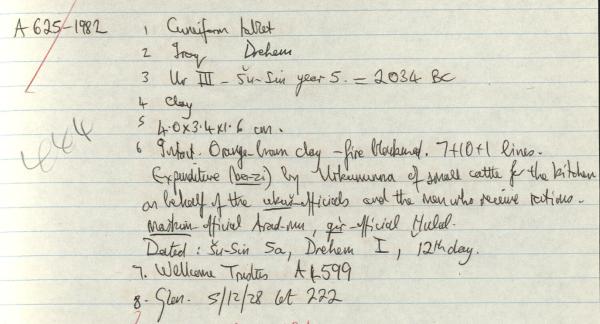 A 625-1982
1 Cuneiform tablet
2 Iraq Drehem
3 Ur III - Šu-Sin year 5. = 2034 BC
4 Clay
5 4.0x3.4x1.6 cm.
6 Intact. Orange-brown clay - fire blackened. 7+10+1 lines.
Expenditure (ba-zi) by Urkununna of small cattle for the kitchen
on behalf of the ukuš-officials and the men who receive rations.
maškim official Arad-mu, gìr-official
Dated: Šu-Sin 5a, Drehem I, 12th day.
7. Wellcome Trustees
8. Glen. 5/12/28 lot 222
444